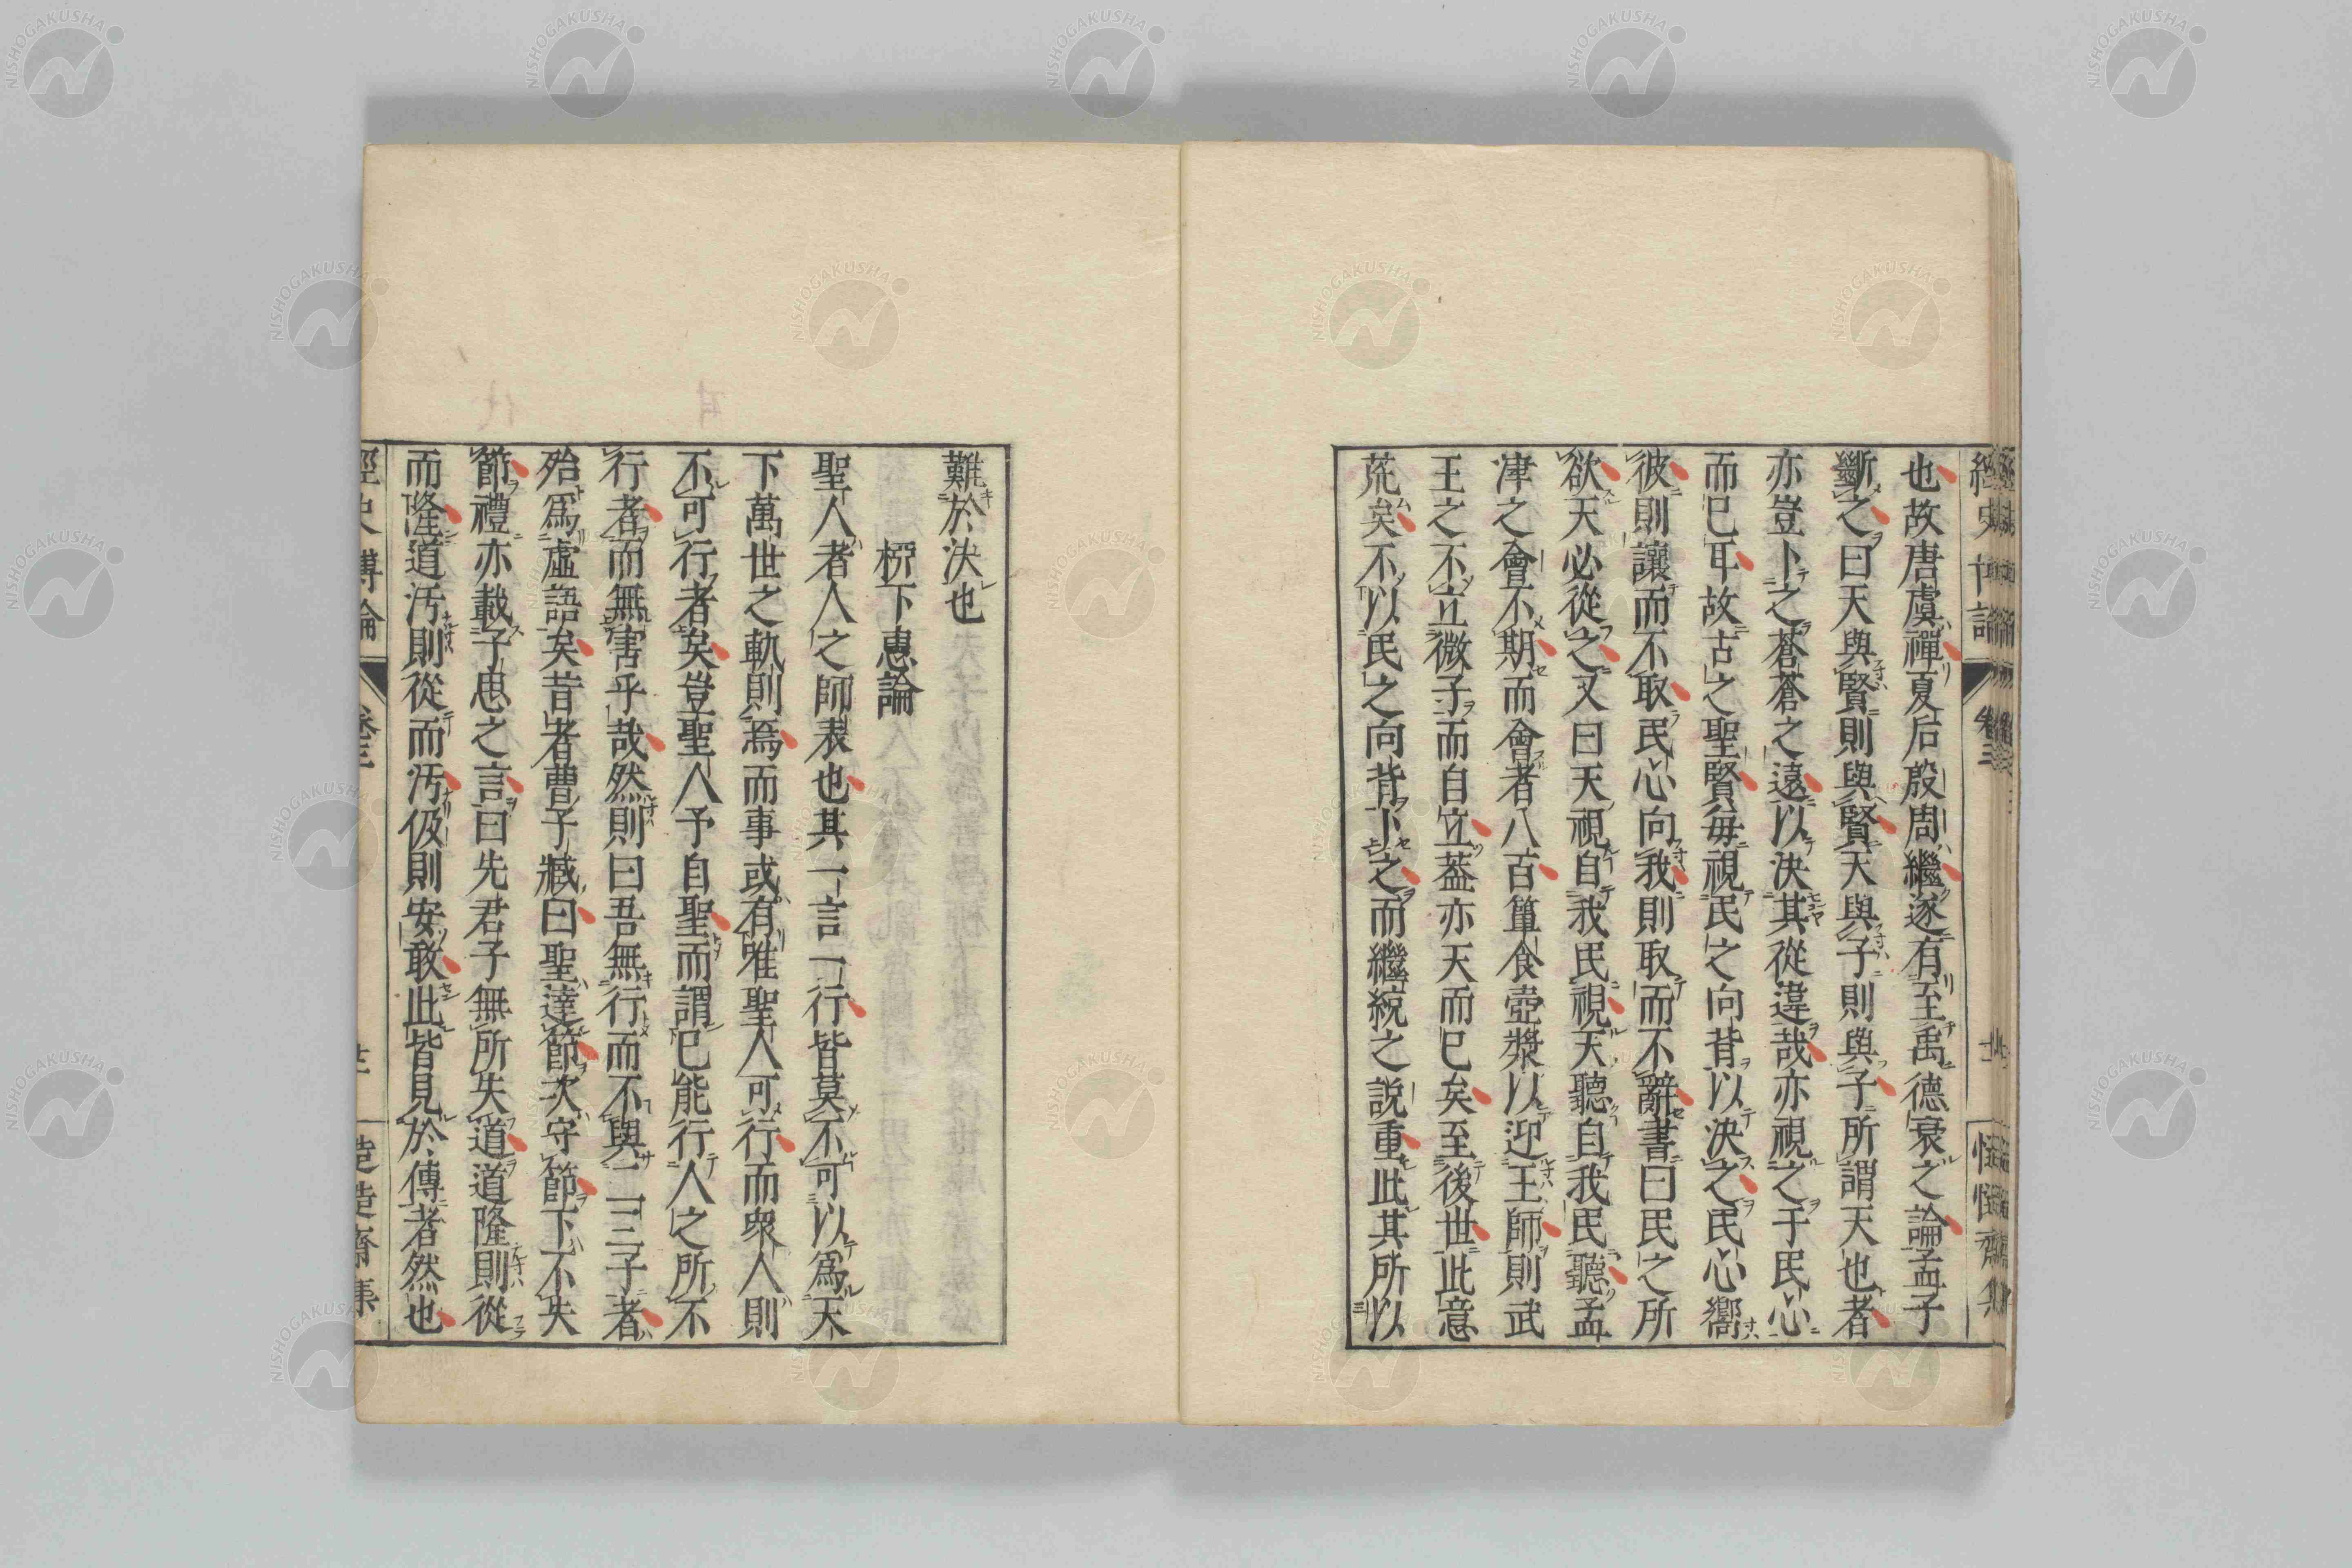 也故唐虞禪夏后殷周繼遂有至禹德衰之論孟子
斷之曰天與賢則與賢天與子則與子所謂天也者
亦豈卜之蒼蒼之遠以決其從違哉亦視之于民心
而已耳故古之聖賢每視民之向背以決之民心嚮
彼則讓而不取民心向我則取而不辭書曰民之所
欲天必從之又曰天視自我民視天聽自我民聽孟
津之會不期而會者八百簞食壺漿以迎王師則武
王之不立微子而自立蓋亦天而已矣至後世此意
荒矣不以民之向背卜之而繼統之説重此其所以
難於決也
柳下惠論
聖人者人之師表也其一言一行皆莫不可以爲天
下萬世之軌則焉而事或有唯聖人可行而衆人則
不可行者矣豈聖人予自聖而謂已能行人之所不
行者而無害乎哉然則曰吾無行而不與二三子者
殆爲虛語矣昔者曹子臧曰聖達節次守節下不失
節禮亦載子思之言曰先君子無所失道道隆則從
而隆道汚則從而汚伋則安敢此皆見於傳者然也
經史博論
卷三